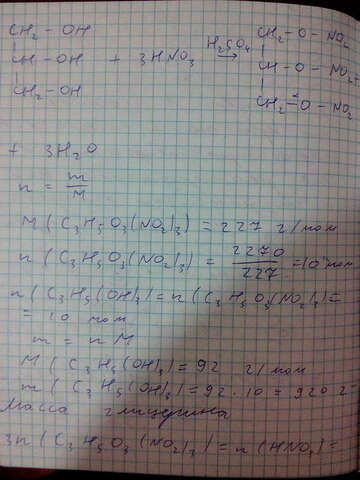 CH₂ - OH CH₂ - O - NO₂
CH - OH + 3HNO₃ H₂SO₄ → CH - O - NO₂ +
CH₂ - OH CH₂ - O - NO₂
+ 3H₂O
n = m/M
M(C₃H₅O₃(NO₂)₃) = 227 г/моль
n(C₃H₅O₃(NO₂)₃) = 2270/227 = 10 моль
n(C₃H₅(OH)₃) = n(C₃H₅O₃(NO₂)₃) =
= 10 моль
m = n M
M(C₃H₅(OH)₃) = 92 г/моль
m(C₃H₅(OH)₃) = 92 · 10 = 920 г
Масса глицерина
3n(C₃H₅O₃(NO₂)₃) = n(HNO₃) =